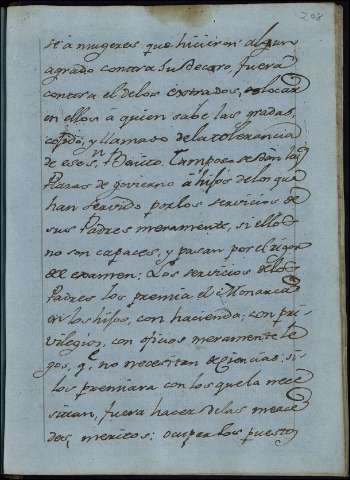 208
se à mugeres que hicieron algun
agrado contra su decoro, fuera
contra el de los estrados, colocar
en ellos à quien sabe las gradas,
y llamado de la tolerancia
de esos. Tampoco se dàn las
Plazas de govierno à hijos de los que
han servido por los servicios de
sus Padres meramente, si ellos
no son capaces, y pasan por el rigor
del examen: Los servicios de los
Padres los premia el Monarca
en los hijos, con hacienda; con pri-
vilegios, con oficios meramente le
gos, q.e no necesitan de Ciencias; si
los premiara con los que la nece
sitan, fuera hacer de las merce
des, meritos: ocupar los puestos